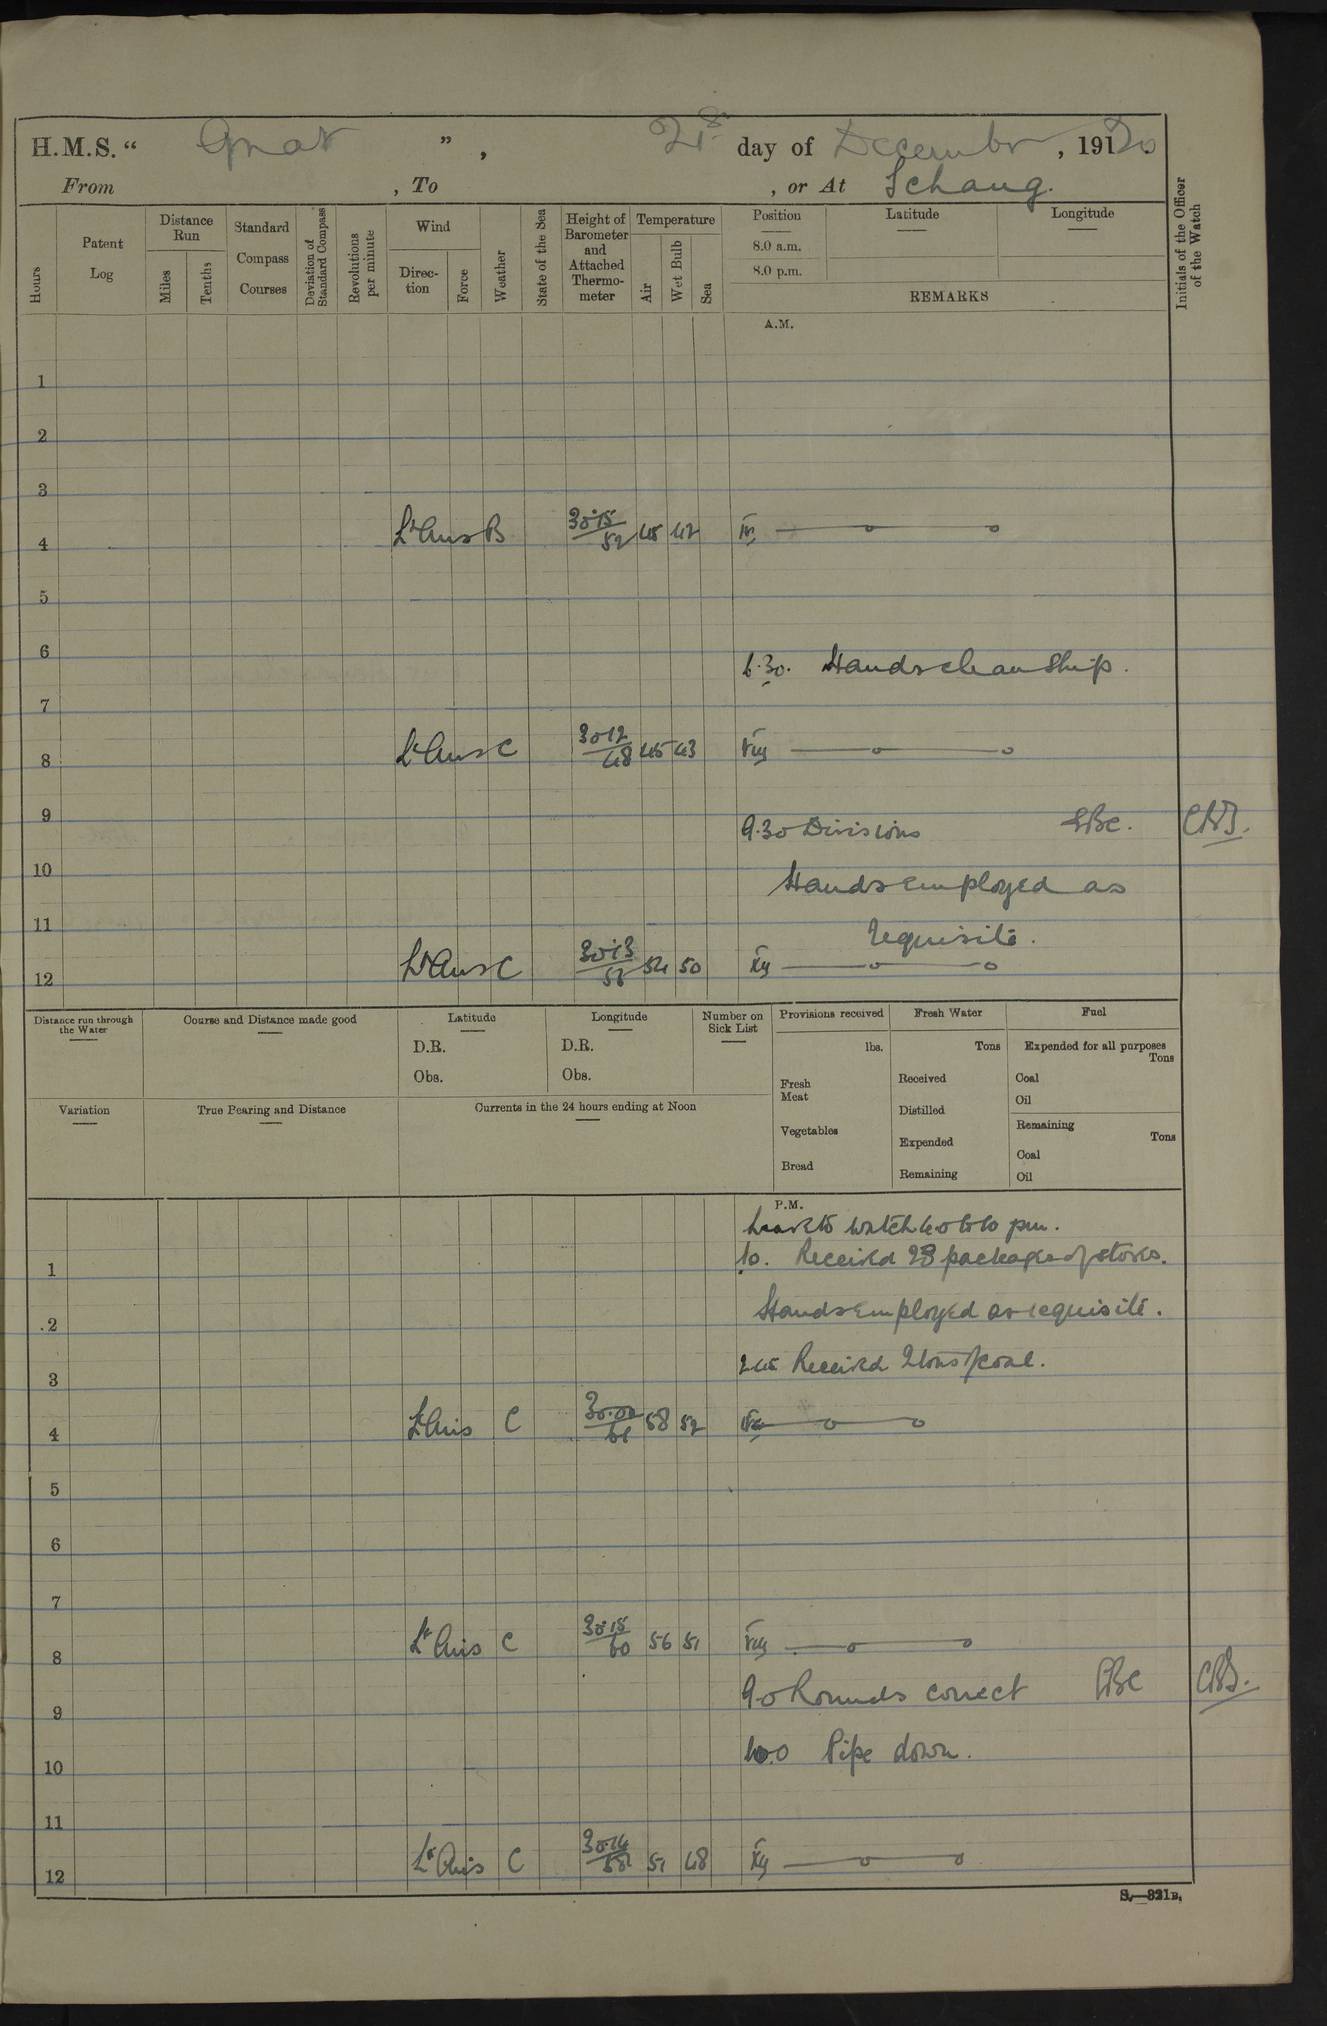 H.M.S. “ Gnat ” , 21st day of December , 191 20
From , To , or At Ichang.
Hours
Patent Log
Distance Run
Miles
Tenths
Standard Compass Courses
Deviation of Standard Compass
Revolutions per minute
Wind
Direction
Force
Weather
State of the Sea
Height of Barometer and Attached Thermometer
Temperature
Air
Wet Bulb
Sea
Position
8.0 a.m.
8.0 p.m.
Latitude
Longitude
REMARKS
Initials of the Officer of the Watch
A.M.
1
2
3
4 Lt Airs B 30.15 52 45 42 IV
5
6
6.30. Hands clean Ship.
7
8 Lt Airs C 30.12 48 45 43 VIII
9
9.30 Divisions
10
Hands employed as
11
requisite.
12 Lt Airs C 30.13 54 50 XII
Distance run through the Water
Course and Distance made good
Latitude
D.R.
Obs.
Longitude
D.R.
Obs.
Number on Sick List
Provisions received
lbs.
Fresh Meat
Vegetables
Bread
Fresh Water
Tons
Received
Distilled
Expended
Remaining
Fuel
Expended for all purposes
Tons
Coal
Oil
Remaining
Tons
Coal
Oil
Variation
True Bearing and Distance
Currents in the 24 hours ending at Noon
P.M.
Leave to watch to 10 pm.
1.0. Received 28 packages of stores.
1
Hands employed as requisite.
2
2.45 Received 2 tons coal.
3
4 Lt Airs C 58 52
5
6
7
8 Lt Airs C 30.15 60 56 51 VIII
9.0 Rounds correct
9
10.0 Pipe down.
10
11
12 Lt Airs C 30.14 51 48 XII
S.—321B.